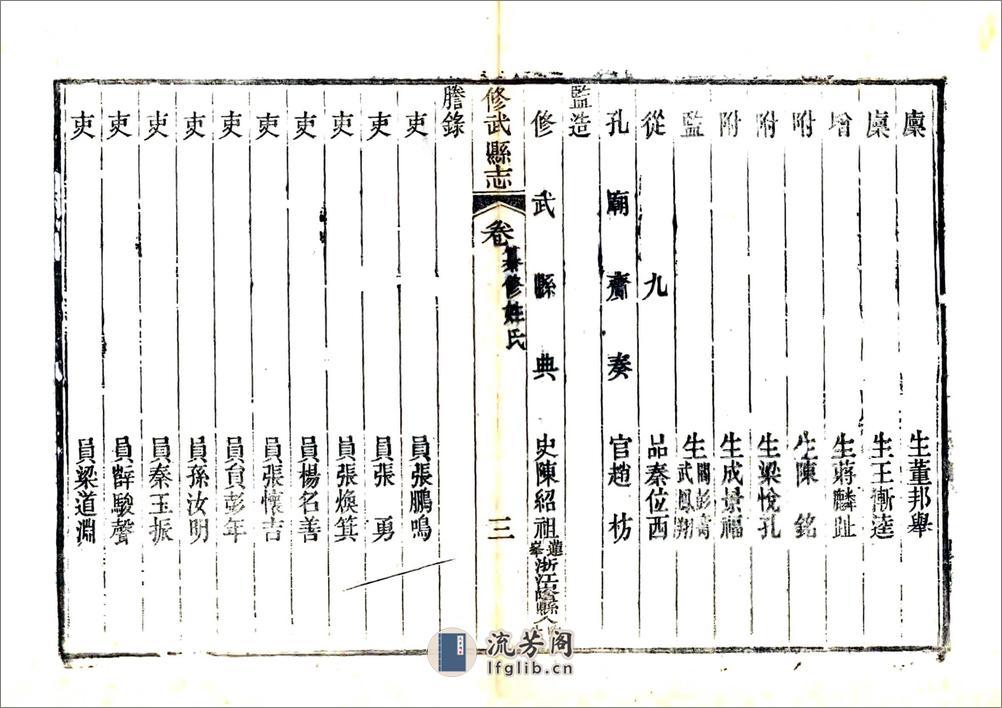 廩生董邦舉
廩生王漸逵
增生蔣麟趾
附生陳銘
附生梁悅孔
附生成景福
監生閻彭齡武鳳翔
從九品秦位西
孔廟齋奏官趙枋
監造
修武縣典史陳紹祖浙江縣人
修武縣志
卷
纂修姓氏
三
謄錄
吏員張鵬鳴
吏員張勇
吏員張煥箕
吏員楊名善
吏員張懷吉
吏員負彭年
吏員孫汝明
吏員秦玉振
吏員薛駿聲
吏員梁道淵
流芳阁
lfglib.cn